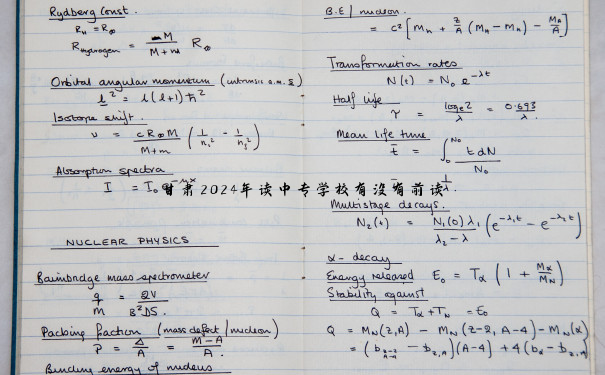 Rydberg Const.
R_H = R_∞
R_Hydrogen = M / (M + m) R_∞
Orbital angular momentum (intrinsic a.m. s)
l² = l(l+1) ħ²
Isotope shift.
ν = c R_∞ M / (M + m) (1/n₁² - 1/n₂²)
Absorption spectra
I = I₀ e^(-μx)
甘肃2024年读中专学校有没有前读
NUCLEAR PHYSICS
Bainbridge mass spectrometer
q/m = 2V / B²DS.
Packing fraction (mass defect / nucleon)
P = Δ/A = (M - A)/A.
Binding energy of nucleus
B.E / nucleon.
= c² [M_n + Z/A (M_H - M_n) - M_A/A]
Transformation rates
N(t) = N₀ e^(-λt)
Half life
τ = log_e 2 / λ = 0.693 / λ.
Mean life time
t̄ = ∫₀^N₀ t dN / N₀
= 1/λ.
Multistage decays.
N₂(t) = N₁(0) λ₁ / (λ₂ - λ) (e^(-λ₁t) - e^(-λ₂t))
α - decay
Energy released E₀ = T_α (1 + M_α/M_N)
Stability against
Q = T_α + T_N = E₀
Q = M_N(Z,A) - M_N(Z-2, A-4) - M_N(α)
= (b_(Z-2,A-4) - b_(Z,A))(A-4) + 4(b_α - b_(Z,A))